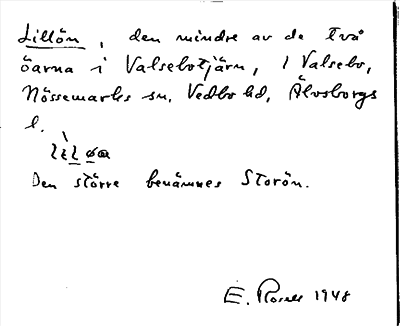 Lillön, den mindre av de två
öarna i Valsebotjärn, i Valsebo,
Nössemarks sn, Vedbo hd, Älvsborgs
l.
Den större benämnes Storön.
E. Rosell 1948